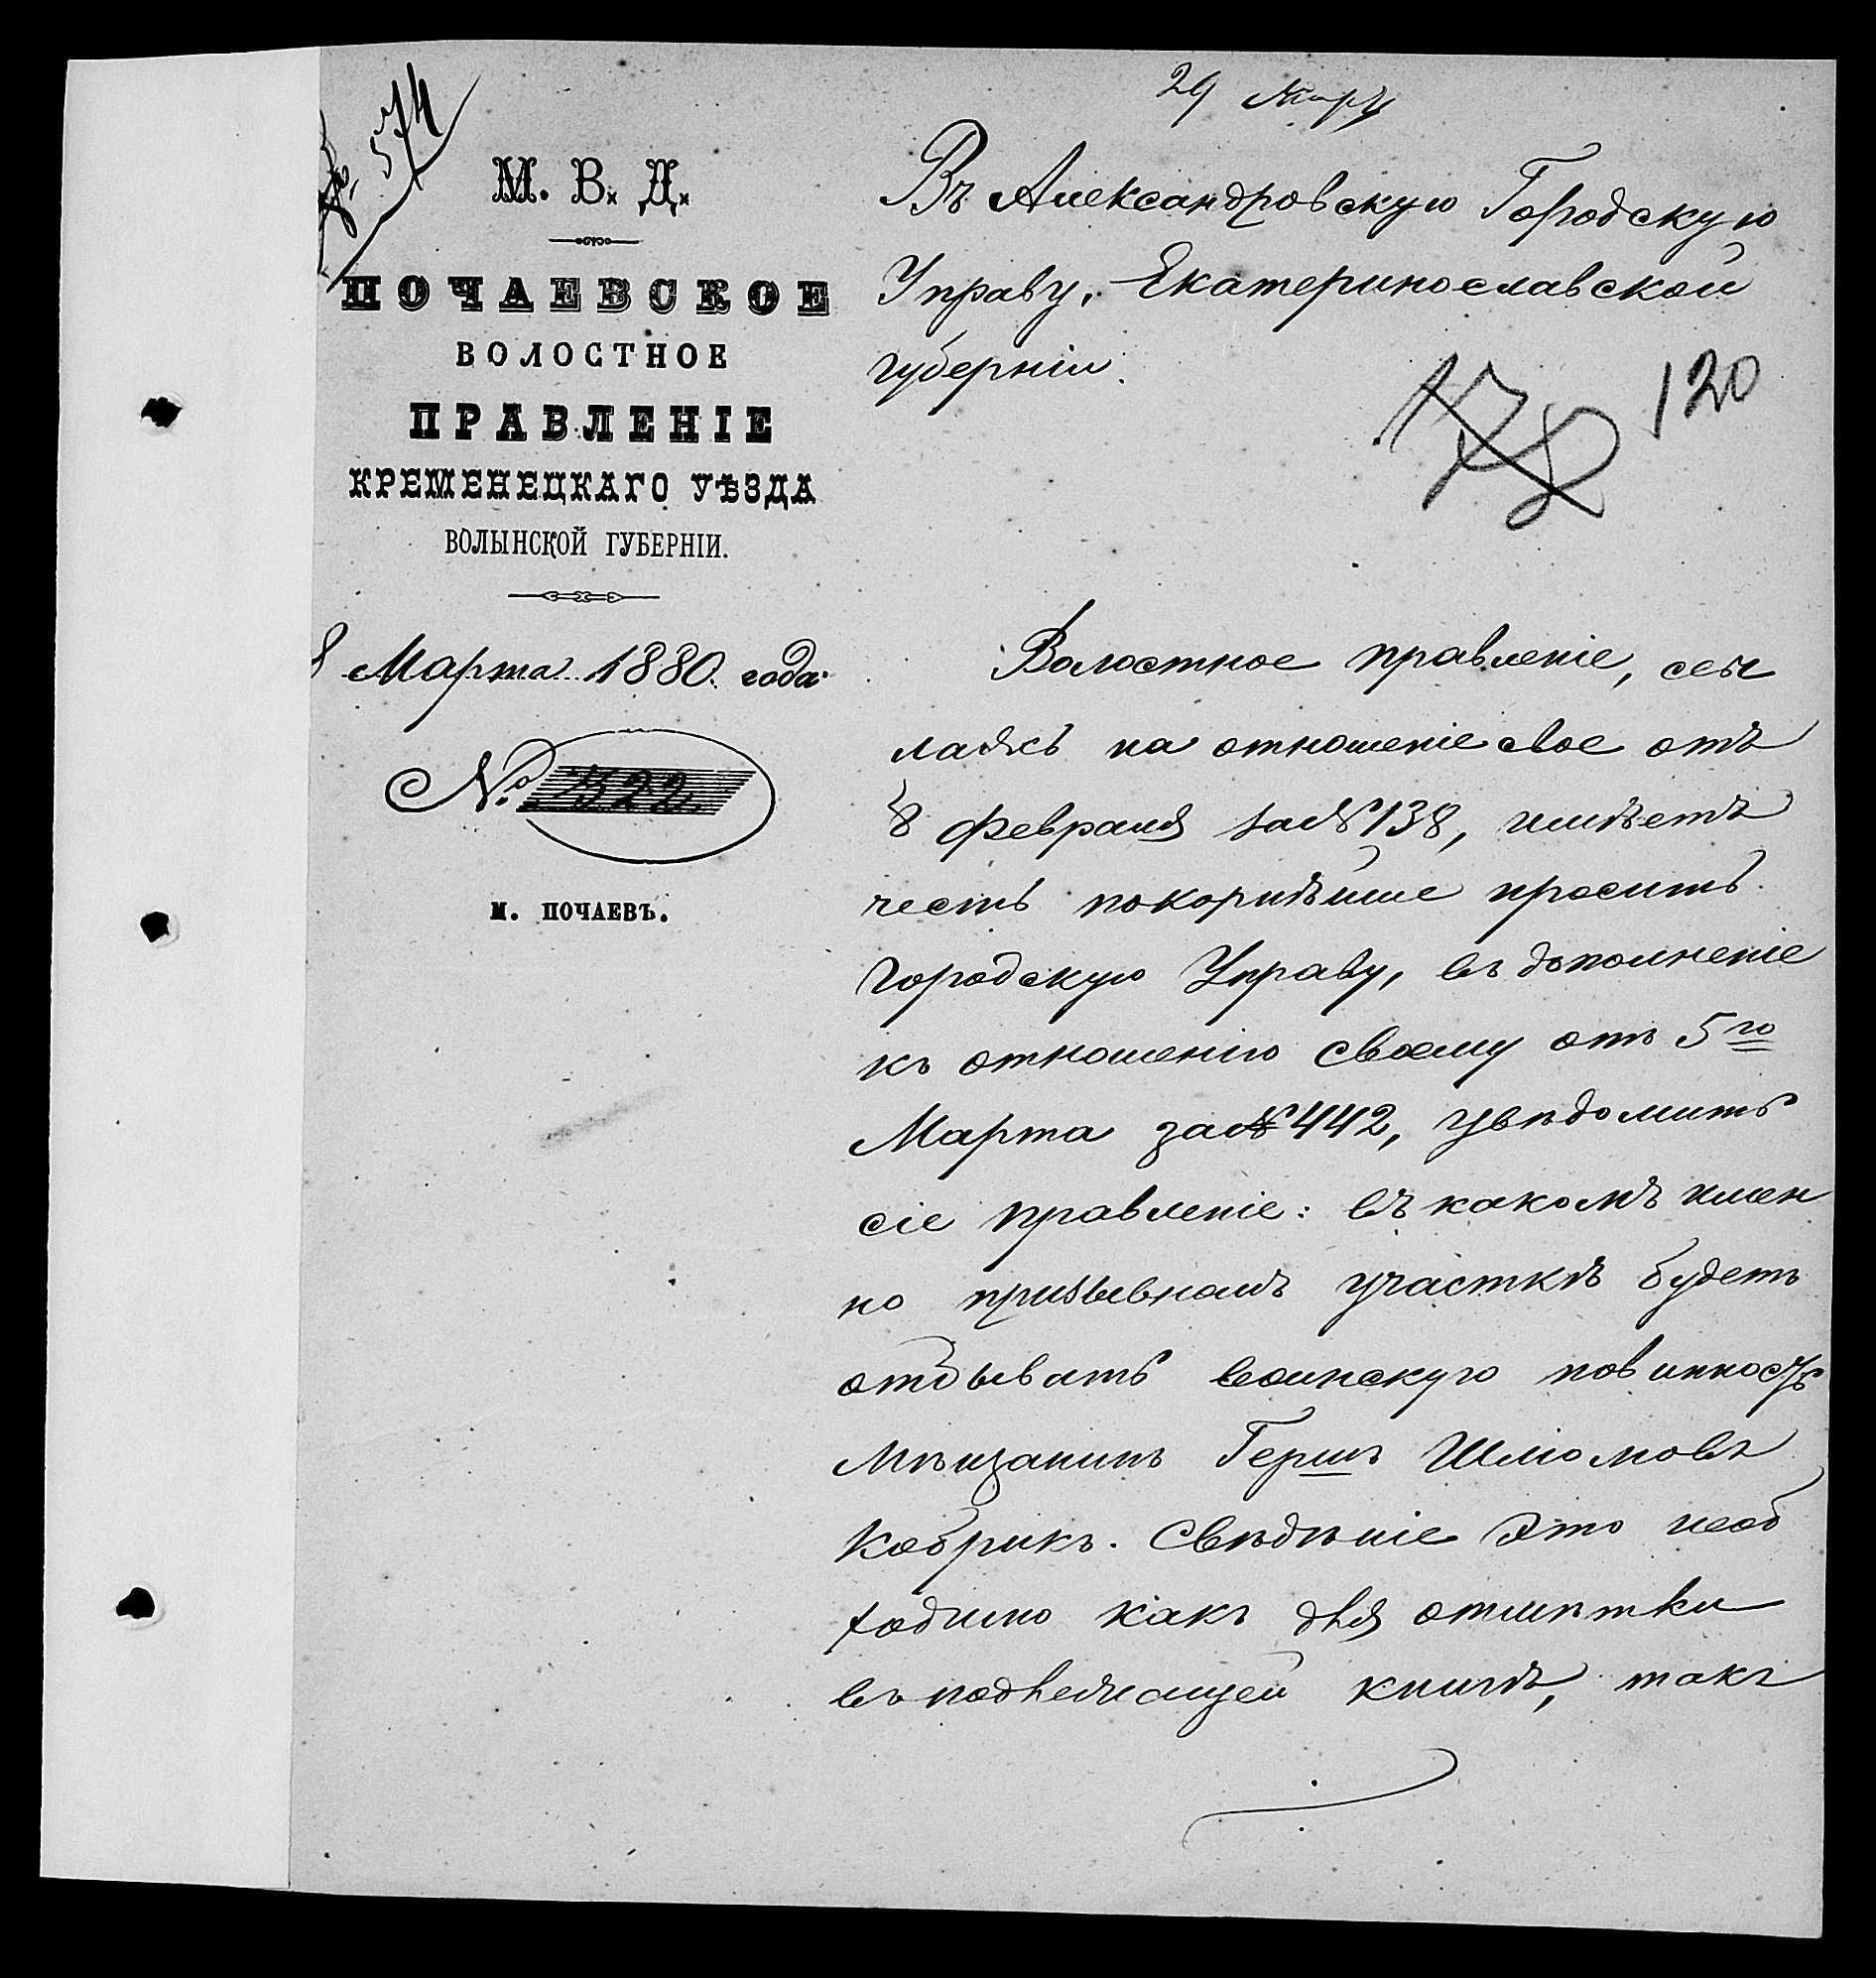 574
29 Мар
М. В. Д.
ПОЧАЕВСКОЕ
ВОЛОСТНОЕ
ПРАВЛЕНІЕ
КРЕМЕНЕЦКАГО УѢЗДА
ВОЛЫНСКОЙ ГУБЕРНІИ.
8 Марта 1880 года
№ 522
М. ПОЧАЕВЪ.
Въ Александровскую Городскую
Управу, Екатеринославской
губерніи.
120
Волостное правленіе, ссы
лаясь на отношеніе свое отъ
8 февраля за № 138, имѣетъ
честь покорнѣйше просить
Городскую Управу, въ дополненіе
къ отношенію своему отъ 5го
Марта за № 442, увѣдомить
сіе правленіе: въ какомъ имен
но призывномъ участкѣ будетъ
отбывать воинскую повинность
мѣщанинъ Гершъ Шліомовъ
Кобрикъ. Свѣдѣніе это необ
ходимо какъ для отмѣтки
въ подлежащей книгѣ, такъ